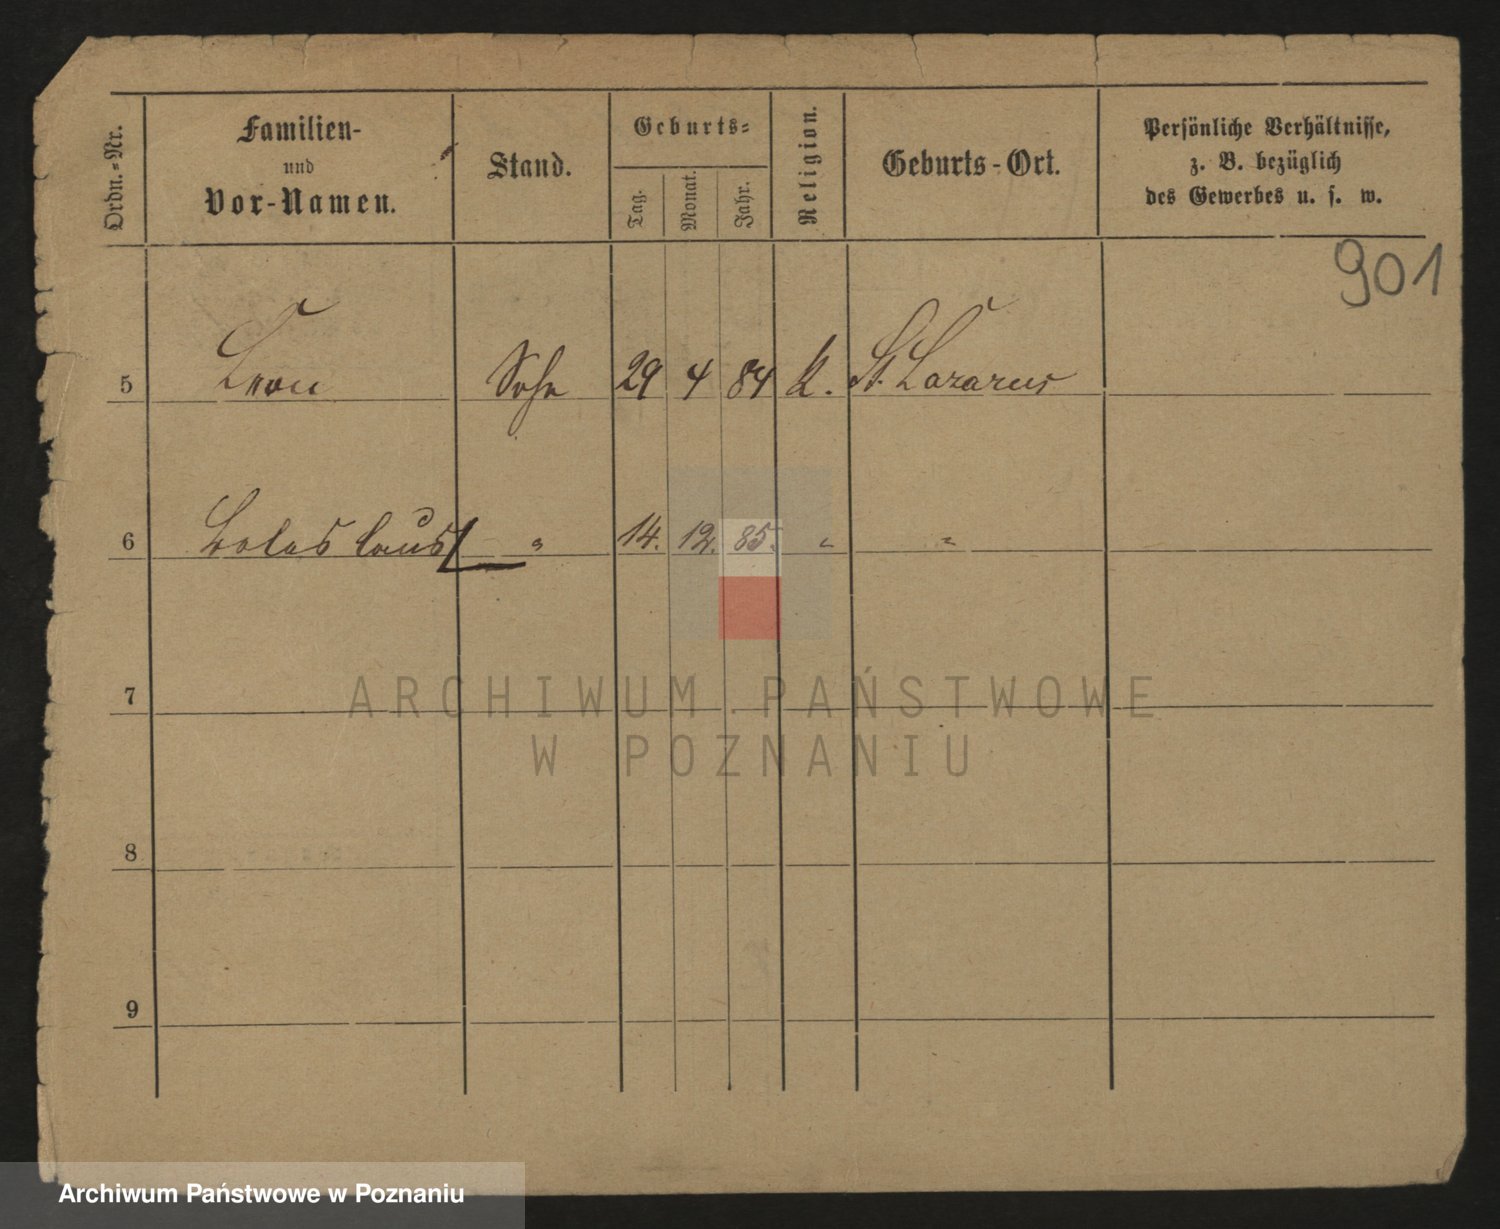 Ordn.-Nr.
Familien-
und
Vor-Namen.
Stand.
Geburts-
Tag.
Monat.
Jahr.
Religion.
Geburts-Ort.
Persönliche Verhältnisse,
z. B. bezüglich
des Gewerbes u. s. w.
901
5 Leon Sohn 29 4 84 k. St. Lazarus
6 Boleslaus " 14. 12. 85. " "
7
ARCHIWUM PAŃSTWOWE
W POZNANIU
8
9
Archiwum Państwowe w Poznaniu